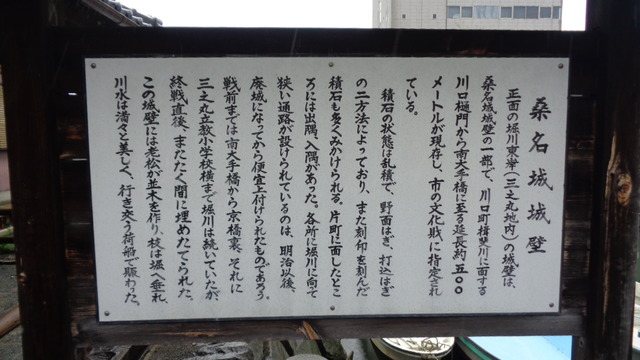 桑名城城壁
正面の堀川東岸(三之丸地内)の城壁は、
桑名城城壁の一部で、川口町揖斐川に面する
川口樋門から南大手橋に至る延長約五〇〇
メートルが現存し、市の文化財に指定され
ている。
積石の状態は乱積で、野面はぎ、打込はぎ
の二方法によっており、また刻印を刻んだ
積石も多くみかけられる。片町に面したとこ
ろには出隅、入隅があった。各所に堀川に向て
狭い通路が設けられているのは、明治以後、
廃城になってから便宜上付けられたものであろう。
戦前までは南大手橋から京橋裏、それに
三之丸立教小学校横まで堀川は続いていたが
終戦直後、またたく間に埋めたてられた。
この城壁には老松が並木を作り、枝は堀へ垂れ
川水は満々と美しく、行き交う荷船で賑わった。